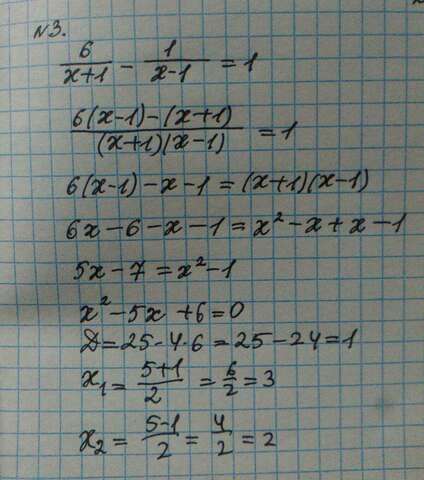 №3.
6/(x+1) - 1/(x-1) = 1
(6(x-1)-(x+1))/((x+1)(x-1)) = 1
6(x-1)-x-1=(x+1)(x-1)
6x-6-x-1=x²-x+x-1
5x-7=x²-1
x²-5x+6=0
Д=25-4·6=25-24=1
x₁=(5+1)/2=6/2=3
x₂=(5-1)/2=4/2=2